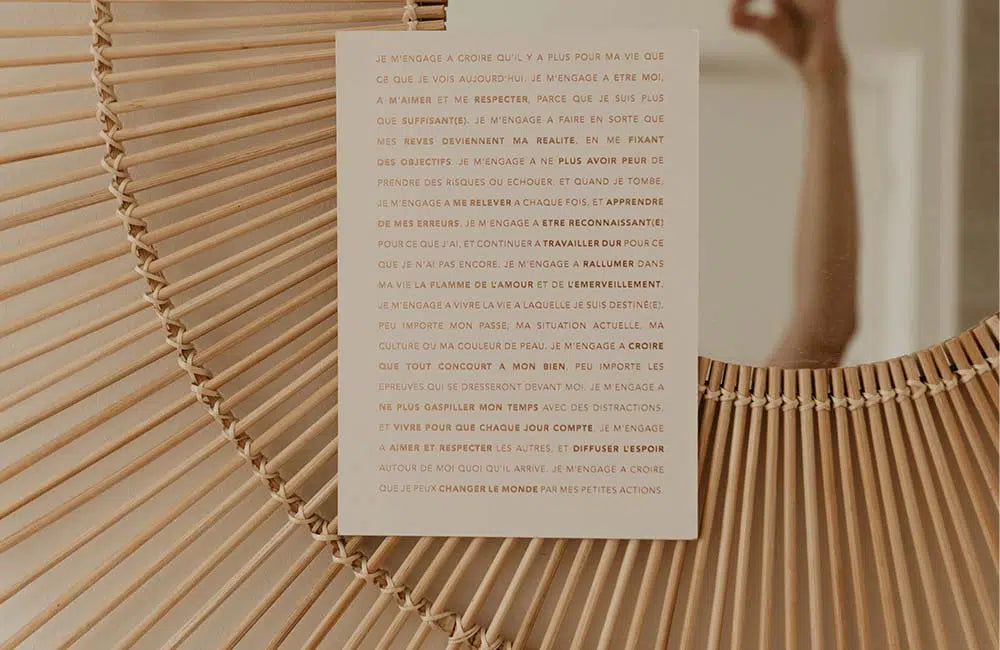 JE M'ENGAGE A CROIRE QU'IL Y A PLUS POUR MA VIE QUE
CE QUE JE VOIS AUJOURD'HUI. JE M'ENGAGE A ETRE MOI,
A M'AIMER ET ME RESPECTER, PARCE QUE JE SUIS PLUS
QUE SUFFISANT(E). JE M'ENGAGE A FAIRE EN SORTE QUE
MES REVES DEVIENNENT MA REALITE, EN ME FIXANT
DES OBJECTIFS. JE M'ENGAGE A NE PLUS AVOIR PEUR DE
PRENDRE DES RISQUES OU ECHOUER, ET QUAND JE TOMBE,
JE M'ENGAGE A ME RELEVER A CHAQUE FOIS, ET APPRENDRE
DE MES ERREURS. JE M'ENGAGE A ETRE RECONNAISSANT(E)
POUR CE QUE J'AI, ET CONTINUER A TRAVAILLER DUR POUR CE
QUE JE N'AI PAS ENCORE. JE M'ENGAGE A RALLUMER DANS
MA VIE LA FLAMME DE L'AMOUR ET DE L'EMERVEILLEMENT.
JE M'ENGAGE A VIVRE LA VIE A LAQUELLE JE SUIS DESTINÉ(E),
PEU IMPORTE MON PASSE, MA SITUATION ACTUELLE, MA
CULTURE OU MA COULEUR DE PEAU. JE M'ENGAGE A CROIRE
QUE TOUT CONCOURT A MON BIEN, PEU IMPORTE LES
EPREUVES QUI SE DRESSERONT DEVANT MOI. JE M'ENGAGE A
NE PLUS GASPILLER MON TEMPS AVEC DES DISTRACTIONS,
ET VIVRE POUR QUE CHAQUE JOUR COMPTE. JE M'ENGAGE
A AIMER ET RESPECTER LES AUTRES, ET DIFFUSER L'ESPOIR
AUTOUR DE MOI QUOI QU'IL ARRIVE. JE M'ENGAGE A CROIRE
QUE JE PEUX CHANGER LE MONDE PAR MES PETITES ACTIONS.